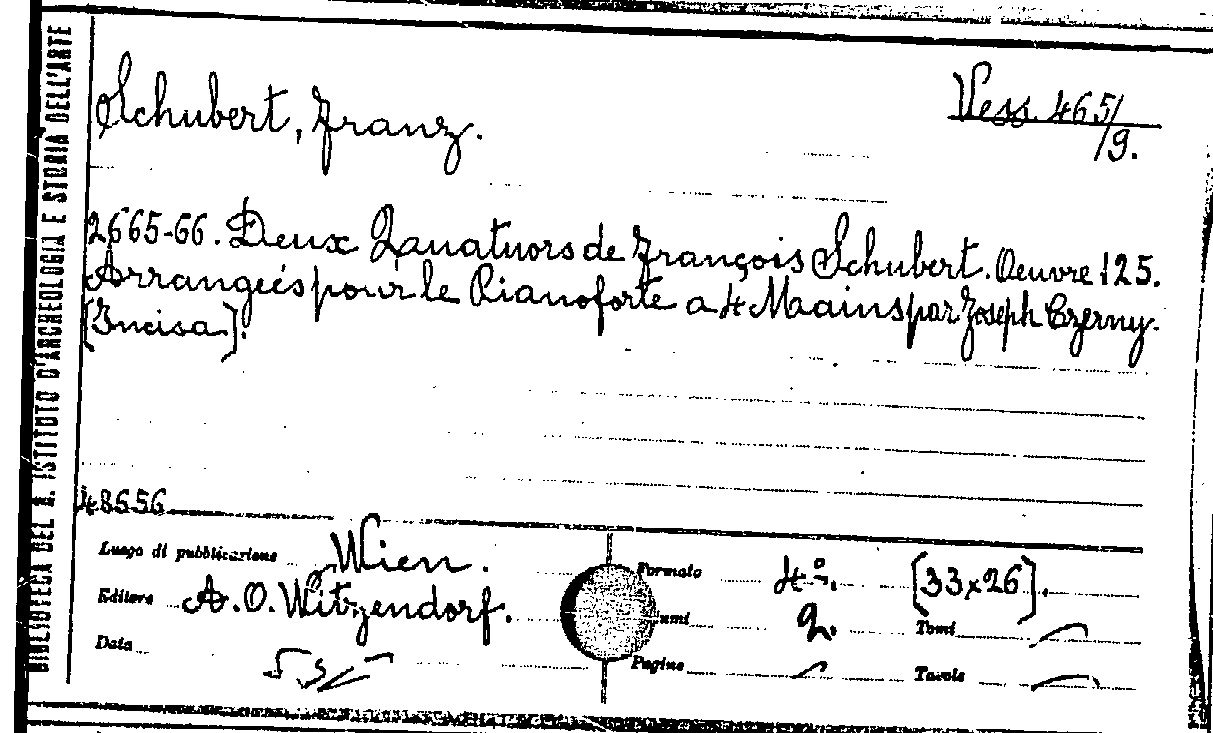 BIBLIOTECA DEL R. ISTITUTO D'ARCHEOLOGIA E STORIA DELL'ARTE
Schubert, Franz.
Vess. 465/
/9.
2665-66. Deux Quatuors de François Schubert. Oeuvre 125.
Arrangeés pour le Pianoforte a 4 Maains par Joseph Czerny.
[Incisa].
48656
Luogo di pubblicazione Wien.
Editore A. O. Witzendorf.
Data
Formato 4º. [33x26].
umi 2. Tomi
Pagine Tavole